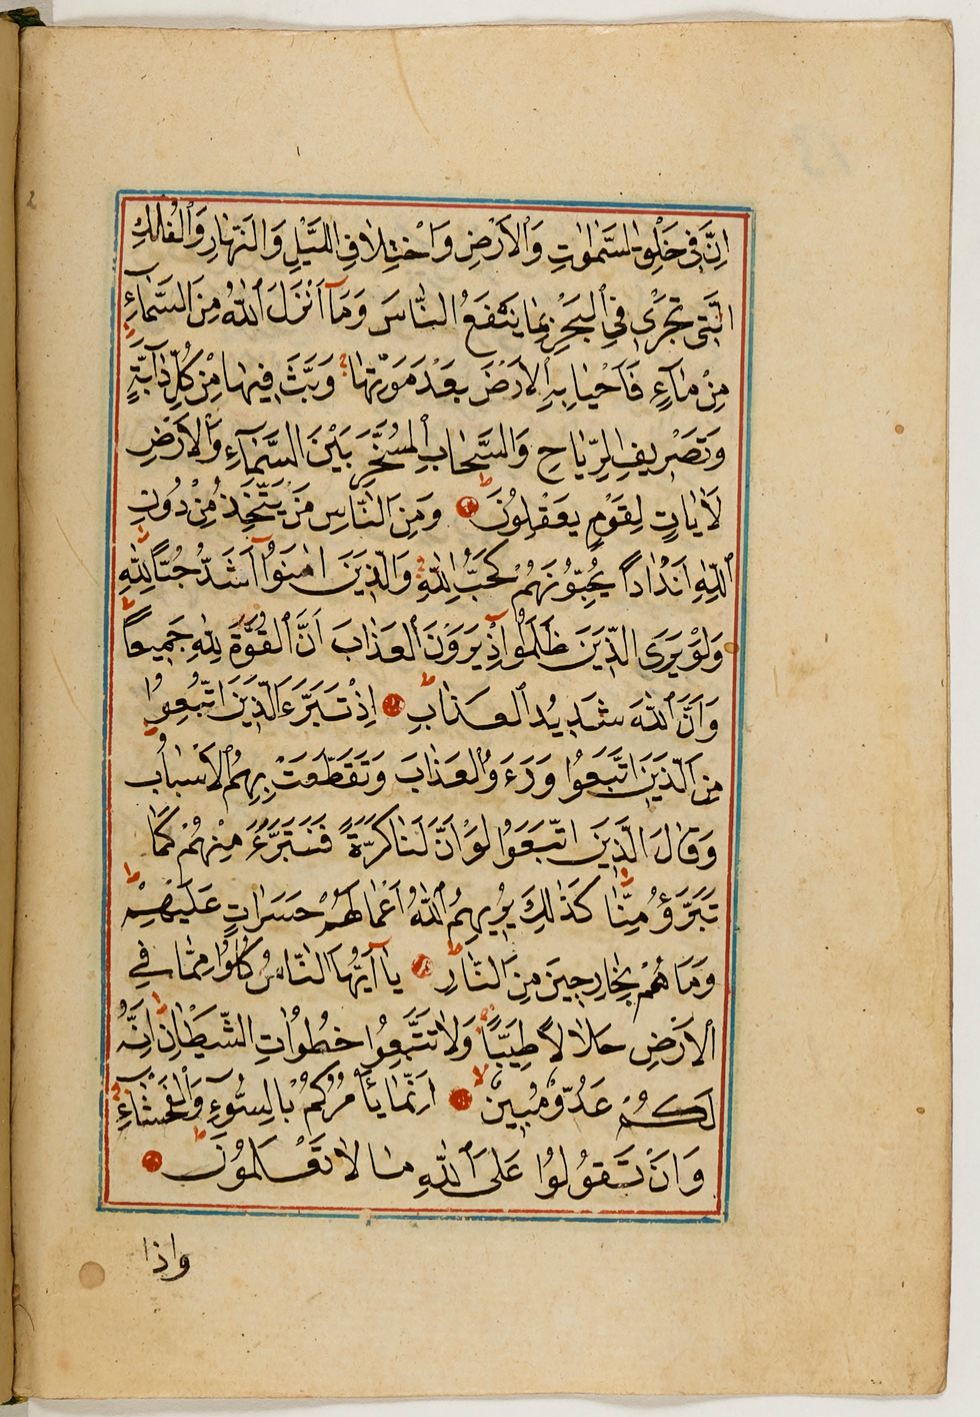 اِنَّ فِي خَلْقِ السَّمٰوَاتِ وَالْاَرْضِ وَاخْتِلَافِ الَّيْلِ وَالنَّهَارِ وَالْفُلْكِ
الَّتِى تَجْرِى فِى الْبَحْرِ بِمَا يَنْفَعُ النَّاسَ وَمَآ اَنْزَلَ اللّٰهُ مِنَ السَّمَآءِ
مِنْ مَآءٍ فَاَحْيَا بِهِ الْاَرْضَ بَعْدَ مَوْتِهَا وَبَثَّ فِيهَا مِنْ كُلِّ دَآبَّةٍ
وَتَصْرِيفِ الرِّيَاحِ وَالسَّحَابِ الْمُسَخَّرِ بَيْنَ السَّمَآءِ وَالْاَرْضِ
لَاٰيَاتٍ لِقَوْمٍ يَعْقِلُونَ وَمِنَ النَّاسِ مَنْ يَتَّخِذُ مِنْ دُونِ
اللّٰهِ اَنْدَاداً يُحِبُّونَهُمْ كَحُبِّ اللّٰهِ وَالَّذِينَ اٰمَنُوٓا اَشَدُّ حُبًّا لِلّٰهِ
وَلَوْ يَرَى الَّذِينَ ظَلَمُوٓا اِذْ يَرَوْنَ الْعَذَابَ اَنَّ الْقُوَّةَ لِلّٰهِ جَمِيعاً
وَاَنَّ اللّٰهَ شَدِيدُ الْعَذَابِ اِذْ تَبَرَّءَ الَّذِينَ اتُّبِعُوا
مِنَ الَّذِينَ اتَّبَعُوا وَرَءَوُا الْعَذَابَ وَتَقَطَّعَتْ بِهِمُ الْاَسْبَابُ
وَقَالَ الَّذِينَ اتَّبَعُوا لَوْ اَنَّ لَنَا كَرَّةً فَنَتَبَرَّءَ مِنْهُمْ كَمَا
تَبَرَّؤُ مِنَّا كَذٰلِكَ يُرِيهِمُ اللّٰهُ اَعْمَالَهُمْ حَسَرَاتٍ عَلَيْهِمْ
وَمَا هُمْ بِخَارِجِينَ مِنَ النَّارِ يَآ اَيُّهَا النَّاسُ كُلُوا مِمَّا فِي
الْاَرْضِ حَلَالًا طَيِّبًا وَلَا تَتَّبِعُوا خُطُوَاتِ الشَّيْطَانِ اِنَّهُ
لَكُمْ عَدُوٌّ مُبِينٌ اِنَّمَا يَأْمُرُكُمْ بِالسُّوٓءِ وَالْفَحْشَآءِ
وَاَنْ تَقُولُوا عَلَى اللّٰهِ مَا لَا تَعْلَمُونَ
واذا